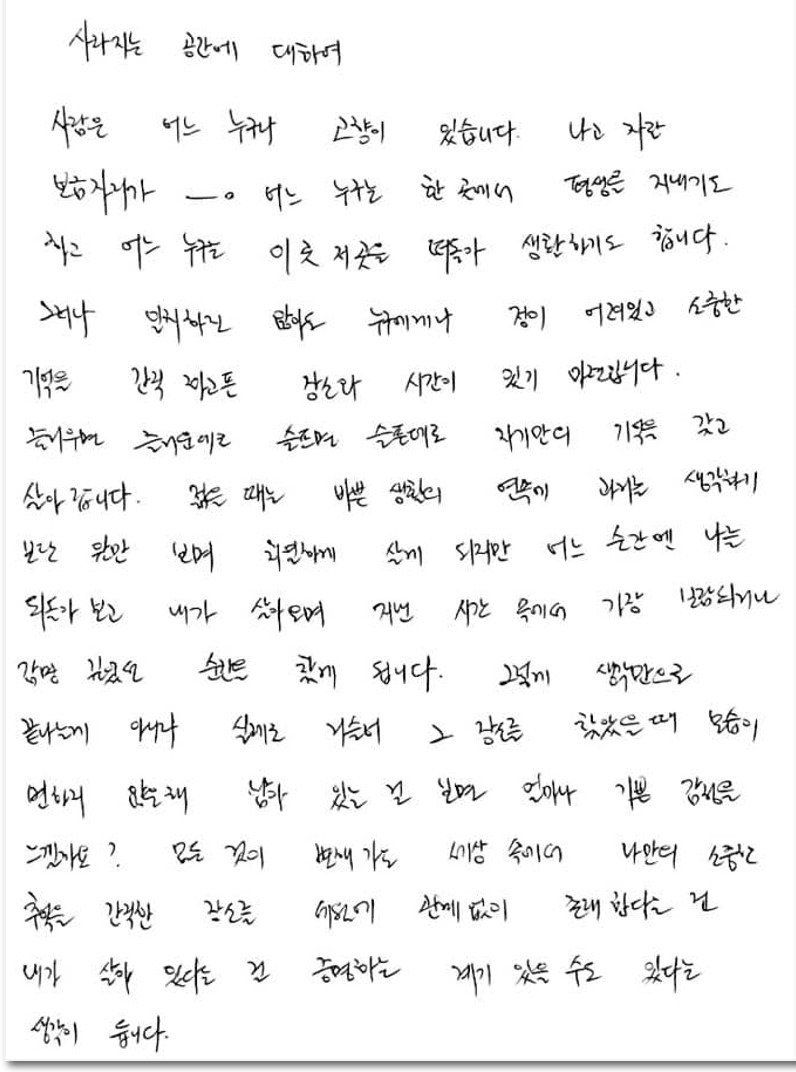 사라지는 공간에 대하여
사람은 어느 누구나 고향이 있습니다. 나고 자란
보금자리가 —。 어느 누구는 한 곳에서 평생을 지내기도
하고 어느 누구는 이 곳 저 곳을 떠돌아 생활하기도 합니다.
그러나 일치하진 않아도 누구에게나 정이 어려있고 소중한
기억을 간직하고픈 장소와 시간이 있기 마련입니다.
즐거우면 즐거운대로 슬프면 슬픈대로 자기만의 기억을 갖고
살아 갑니다. 젊을 때는 바쁜 생활의 연속에 과거는 생각하기
보단 앞만 보며 치열하게 살게 되지만 어느 순간엔 나를
되돌아 보고 내가 살아오며 지난 시간 속에서 가장 보람되거나
감명 깊었던 순간을 찾게 됩니다. 그렇게 생각만으로
끝나는게 아니라 실제로 거슬러 그 장소를 찾았을 때 모습이
변하지 않은채 남아 있는 걸 보면 얼마나 기쁜 감정을
느낄까요? 모든 것이 변해 가도 세상 속에서 나만의 소중한
추억을 간직한 장소를 세월에 관계 없이 존재 한다는 건
내가 살아 있다는 걸 증명하는 계기 있을 수도 있다는
생각이 듭니다.